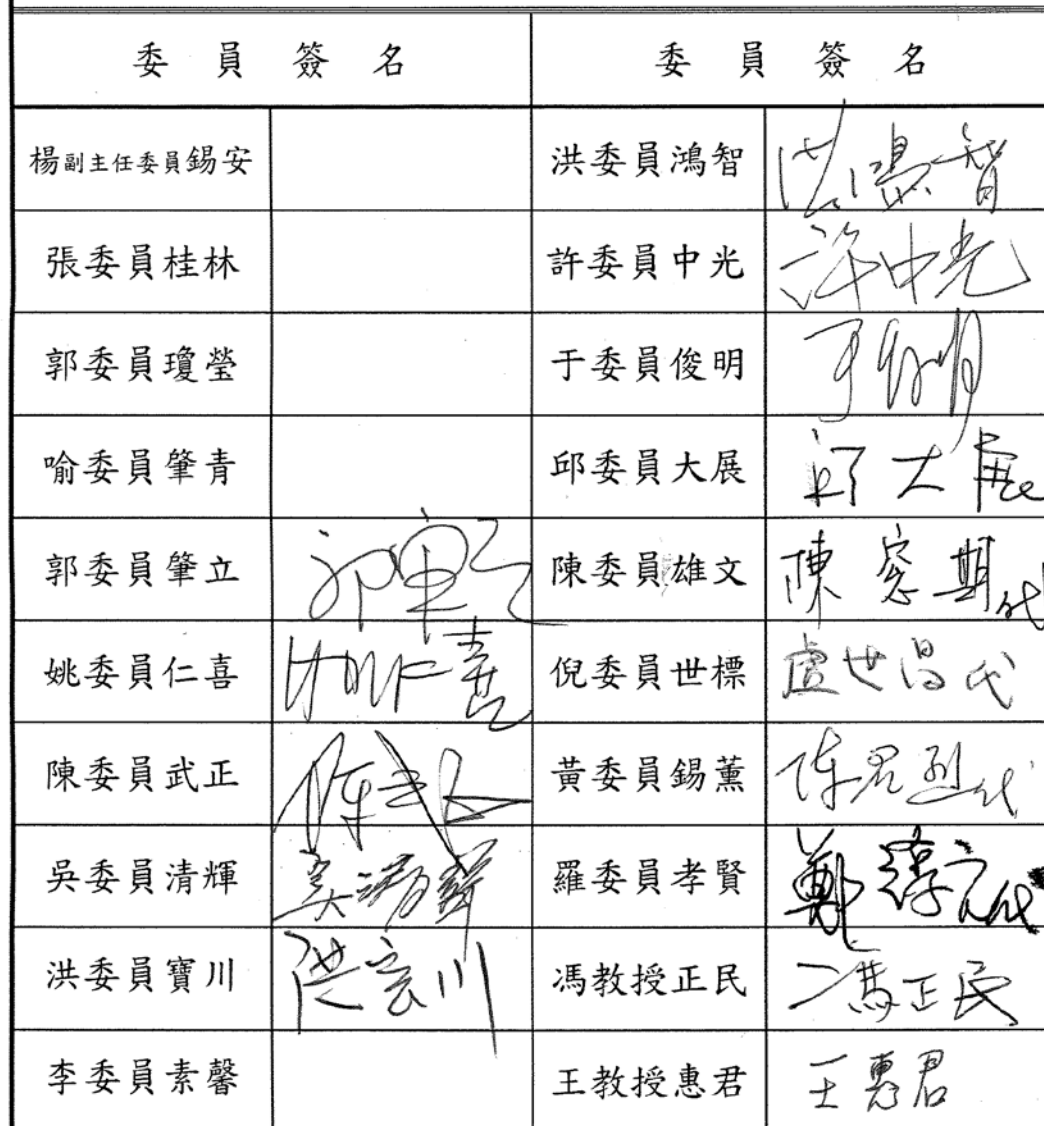 委員簽名 委員簽名
楊副主任委員錫安 洪委員鴻智 洪鴻智
張委員桂林 許委員中光 許中光
郭委員瓊瑩 于委員俊明 于俊明
喻委員肇青 邱委員大展 邱大展
郭委員肇立 陳委員雄文 陳 期代
姚委員仁喜 姚仁喜 倪委員世標 盧世昌代
陳委員武正 陳武正 黃委員錫薰 陳君烈代
吳委員清輝 吳清輝 羅委員孝賢 鄭淳元代
洪委員寶川 洪宝川 馮教授正民 馮正民
李委員素馨 王教授惠君 王惠君